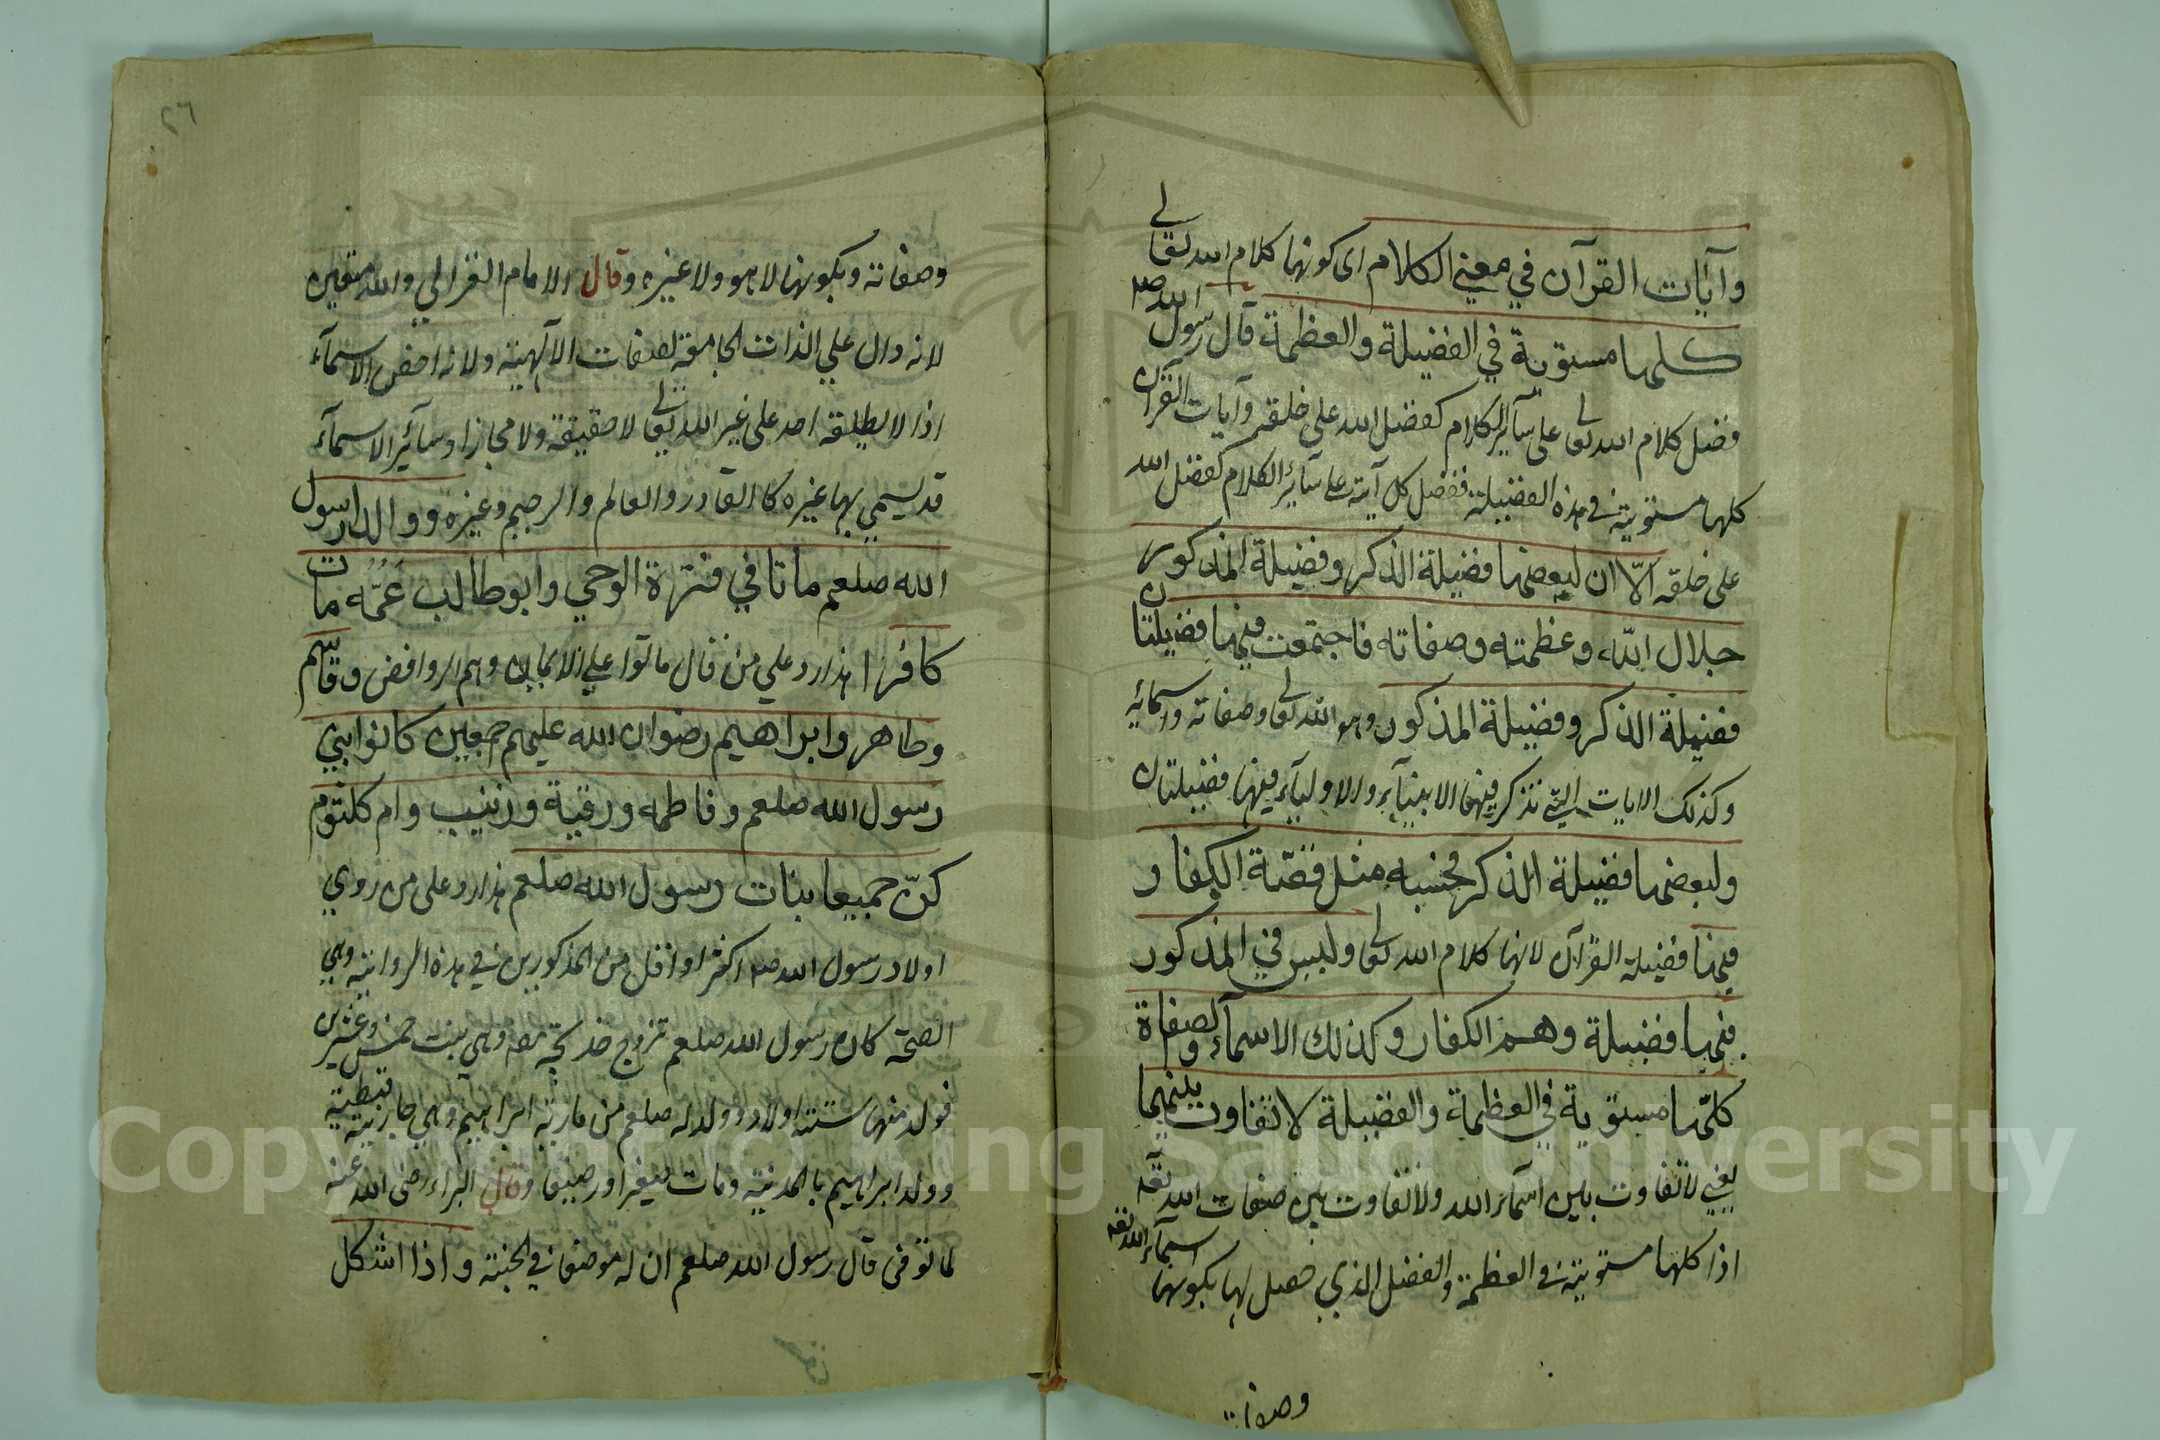 وآيات القرآن في معني الكلام اى كونها كلام الله تعالى
كلها مستوية في الفضيلة والعظمة قال رسول الله صلم
فضل كلام الله تعالى على سآئر الكلام كفضل الله على خلقه وآيات القرآن
كلها مستوية فى هذه الفضيلة ففضل كل آية على سآئر الكلام كفضل الله
على خلقه الّا ان لبعضها فضيلة الذكر وفضيلة المذكور
جلال الله وعظمته وصفاته فاجتمعت فيها فضيلتان
فضيلة الذكر وفضيلة المذكور وهو الله تعالى وصفاته واسمائه
وكذلك الايات التي تذكر فيها الانبيآء والاوليآء فيها فضيلتان
ولبعضها فضيلة الذكر فحسب مثل قصّة الكفار
فيها فضيلة القرآن لانها كلام الله تعالى وليس في المذكور
فيها فضيلة وهم الكفار وكذلك الاسمآء والصفاة
كلّها مستوية في العظمة والفضيلة لا تفاوت بينهما
يعني لا تفاوت بين اسمآء الله ولا تفاوت بين صفات الله تعه
اذا كلها مستوية فى العظمة والفضل الذي حصل لها بكونها اسمآء الله تعه
وصفات
٢٦
وصفاته وبكونها لا هو ولا غيره وقال الامام الغزالي والله متعين
لانه دال علي الذات الجامعة لصفات الآلهية ولانه اخص الاسمآء
اذا لا يطلقه احد على غير الله تعالى لا حقيقة ولا مجازا وسآئر الاسمآء
قد يسمي بها غيره كالقادر والعالم والرحيم وغيره ووالدا رسول
الله صلعم ماتا في فترة الوحي وابو طالب عَمُّه مات
كافرا هذا رد علي من قال ماتوا علي الايمان وهم الروافض وقاسم
وطاهر وابراهيم رضوان الله عليهم اجمعين كانوا بني
رسول الله صلعم وفاطمه ورقية وزينب وام كلثوم
كنّ جميعا بنات رسول الله صلعم هذا رد على من روي
اولاد رسول الله صلم اكثر او اقل من المذكورين في هذه الرواية وهي
الصحة كان رسول الله صلعم تزوج خديجة رضه وهي بنت خمس وعشرين
فولد منها ستة اولاد وولد له صلعم من مارية ابراهيم وهي جارية قبطية
وولد ابراهيم بالمدينة ومات صغيرا ورضيعا وقال البراء رضى الله عنه
لما توفى قال رسول الله صلعم ان له موضعا في الجنة واذا اشكل